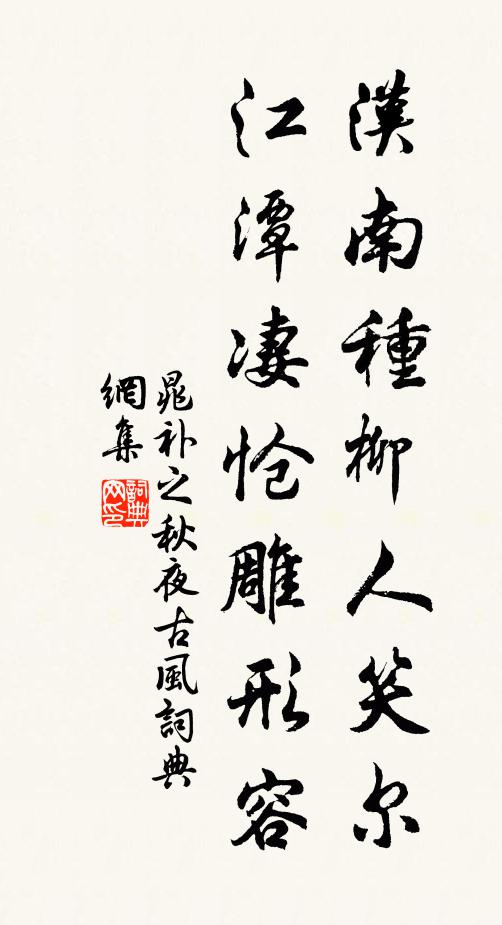 漢南種柳人笑尔
江潭凄怆雕形容
晁补之秋夜古風詞典
網集
詞典
网印